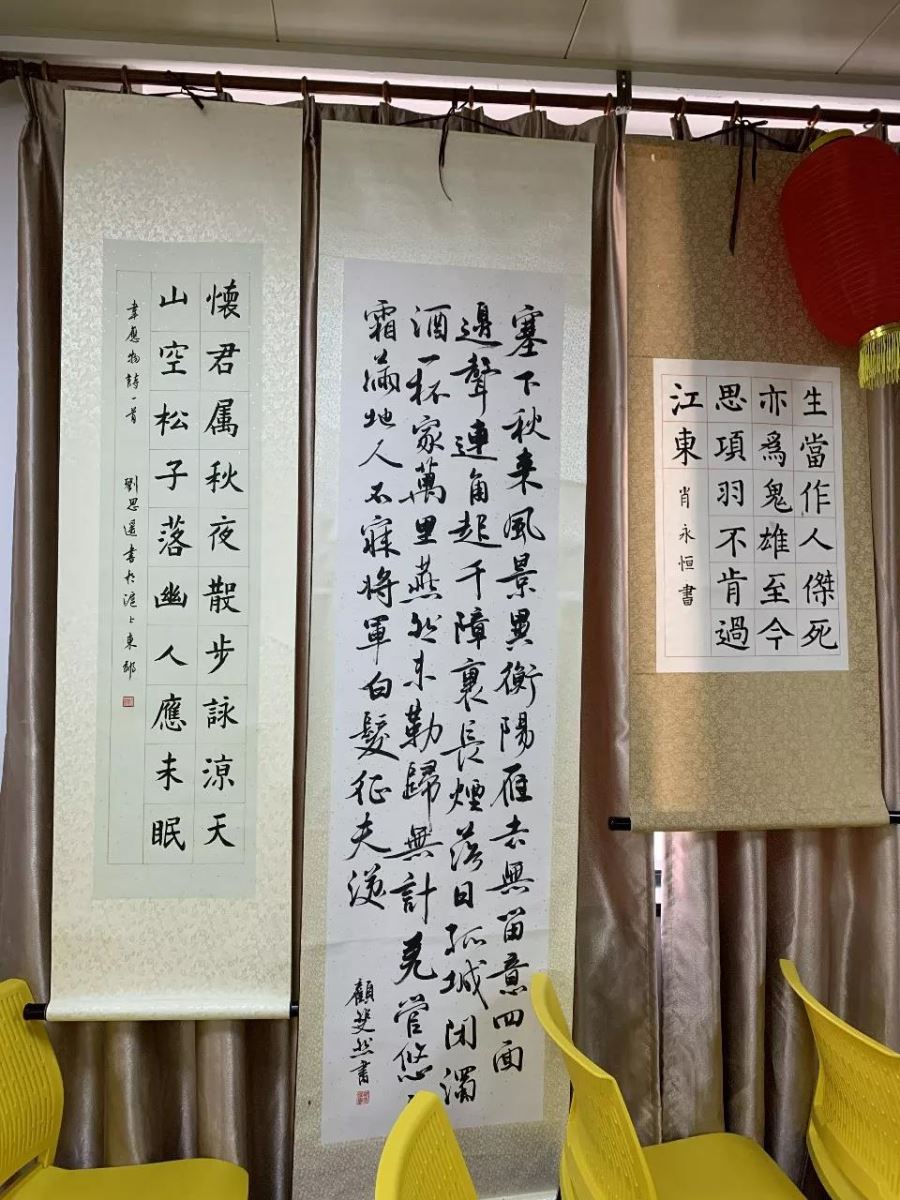 懷君属秋夜散步詠涼天
山空松子落幽人應未眠
韋應物詩一首 劉思遥書於滬上東郊
塞下秋来風景異衡陽雁去無留意四面
邊聲連角起千障裏長煙落日孤城閉濁
酒一杯家萬里燕然未勒歸無計羌管悠
霜滿地人不寐將軍白髮征夫淚
顧斐然書
生當作人傑死
亦爲鬼雄至今
思項羽不肯過
江東 肖永恒書